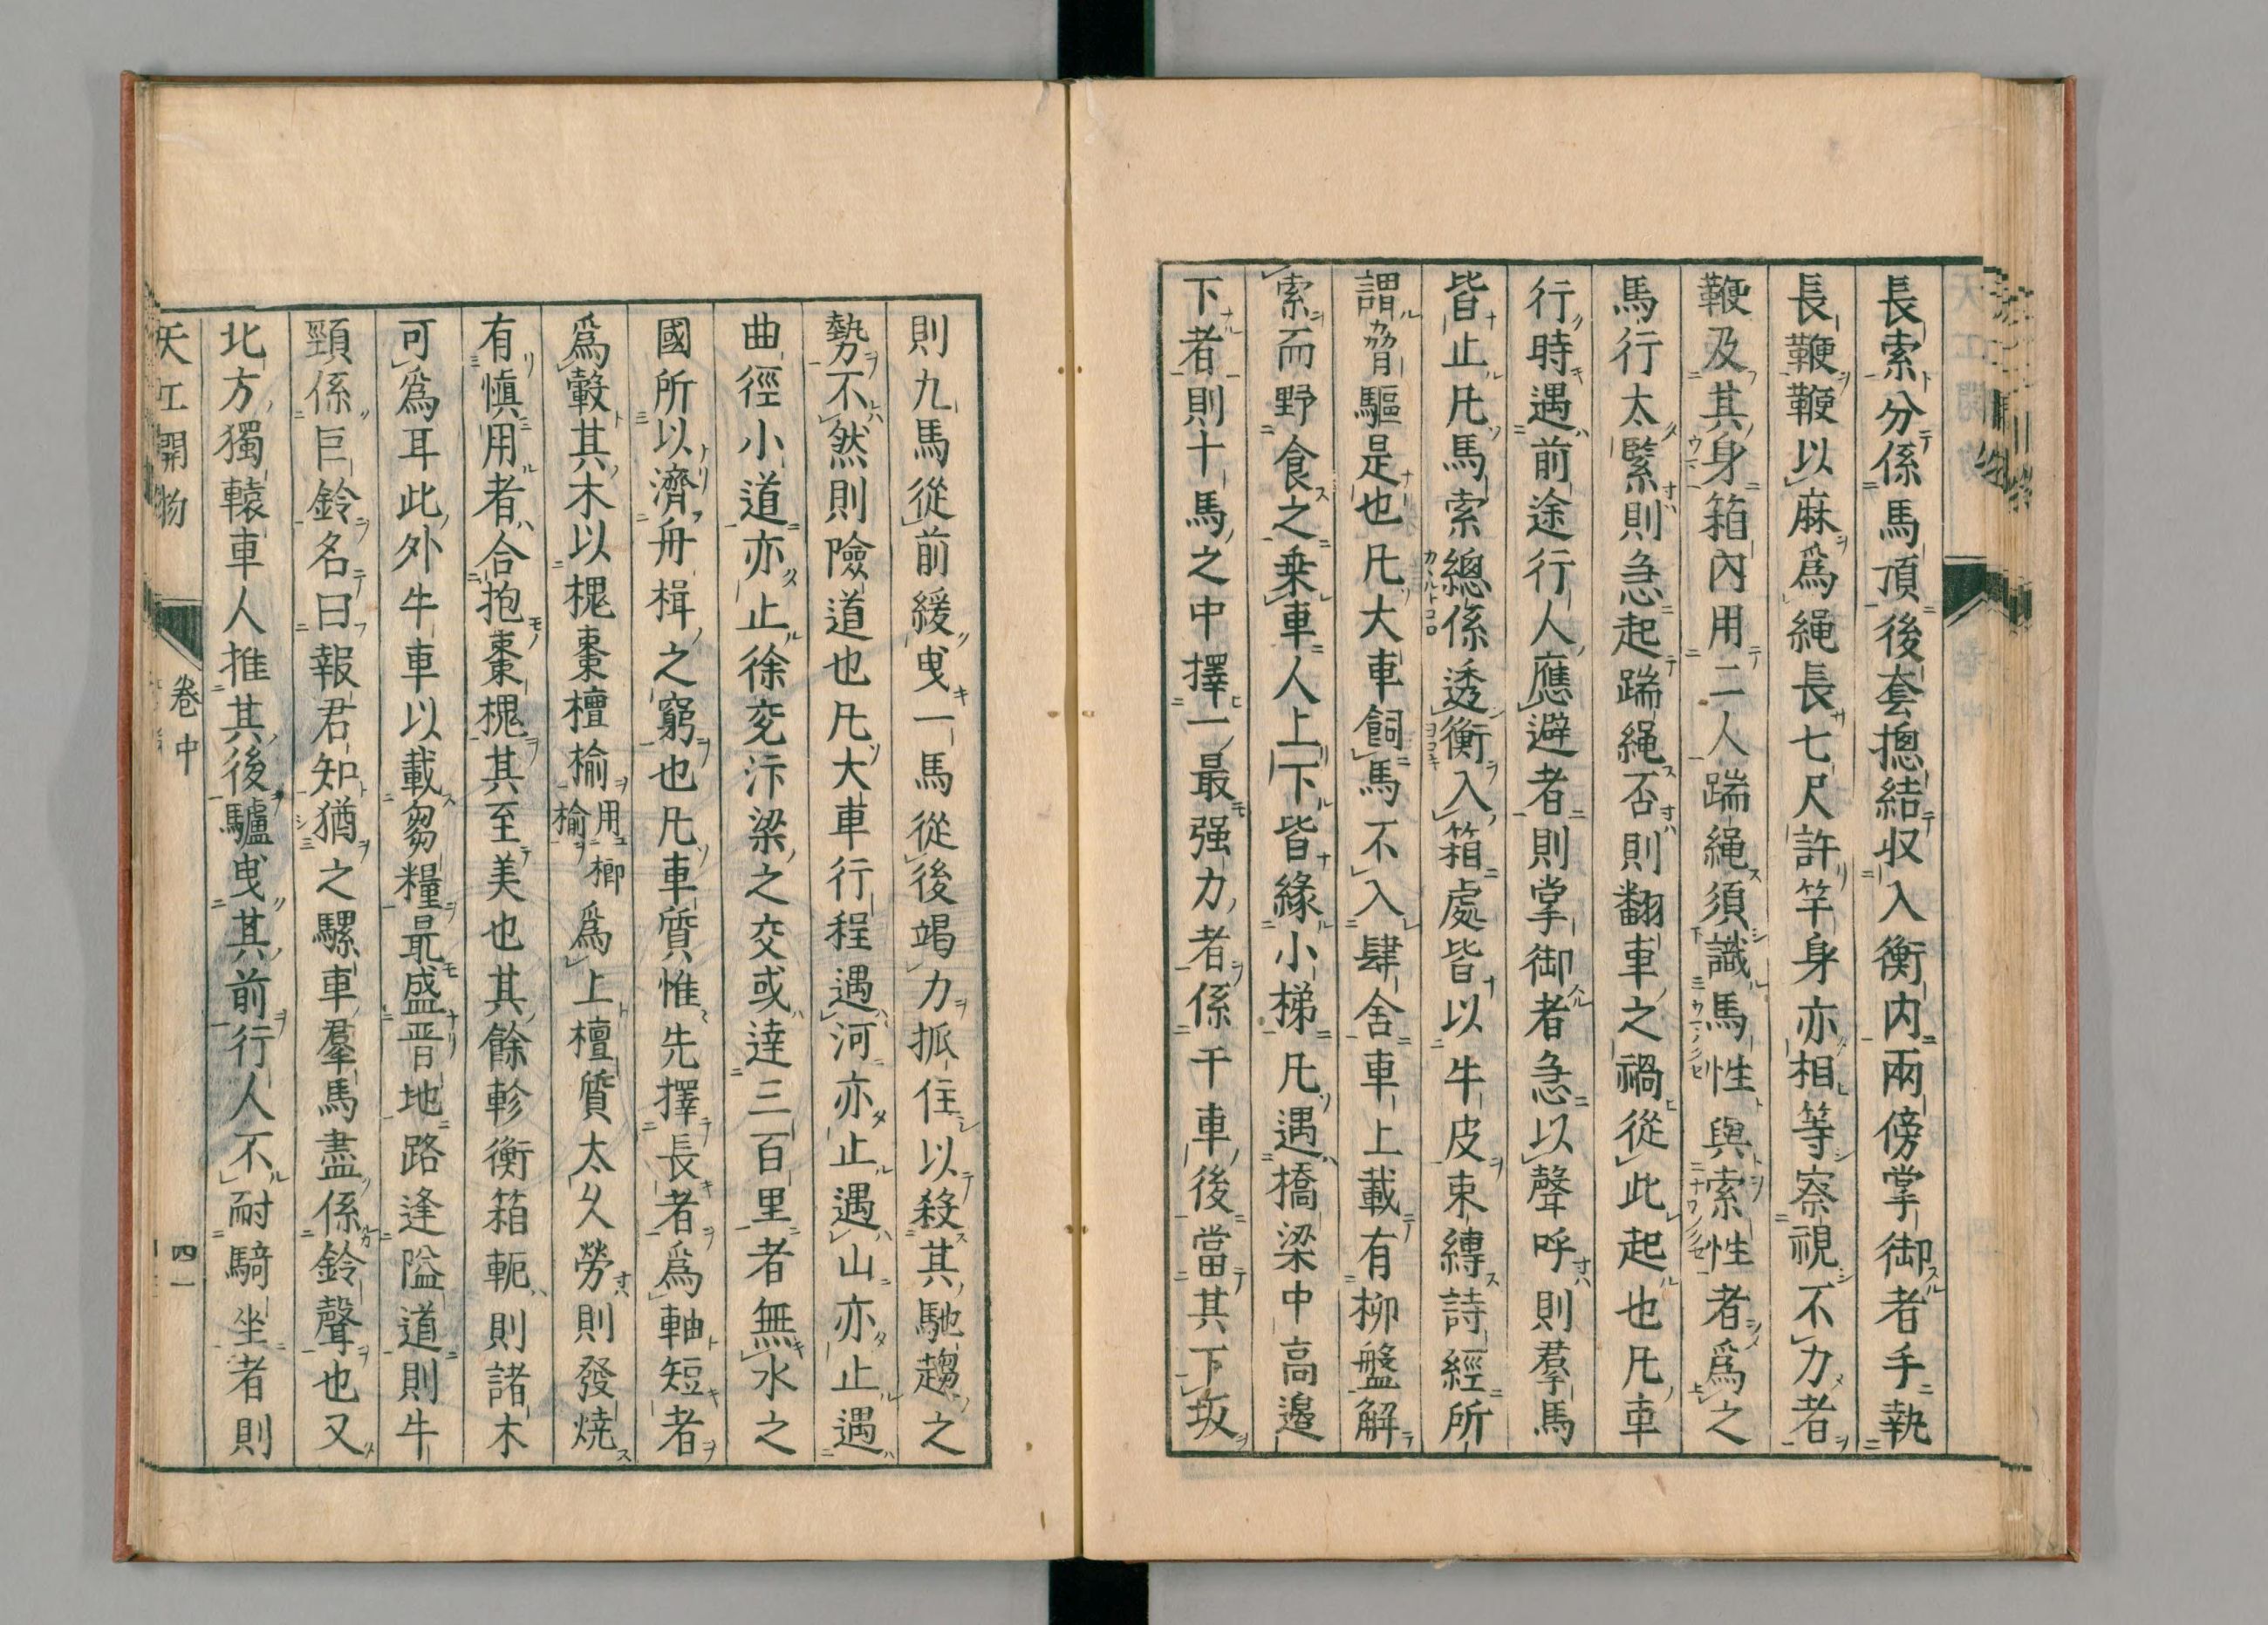 長索分係馬項後套摠結収入衡内兩傍掌御者手執
長鞭鞭以麻爲繩長七尺許竿身亦相等察視不力者
鞭及其身箱内用二人踹繩須識馬性與索性者爲之
馬行太緊則急起踹繩否則翻車之禍從此起也凡車
行時遇前途行人應避者則掌御者急以聲呼則羣馬
皆止凡馬索總係透衡入箱處皆以牛皮束縛詩經所
謂脅驅是也凡大車飼馬不入肆舍車上載有柳盤解
索而野食之乗車人上下皆緣小梯凡遇橋梁中高邉
下者則十馬之中擇一最强力者係于車後當其下坂
則九馬從前緩曳一馬從後竭力抓住以殺其馳趨之
勢不然則險道也凡大車行程遇河亦止遇山亦止遇
曲徑小道亦止徐兖汴梁之交或達三百里者無水之
國所以濟舟楫之窮也凡車質惟先擇長者爲軸短者
爲轂其木以槐棗檀榆用榔榆爲上檀質太久勞則發燒
有愼用者合抱棗槐其至美也其餘軫衡箱軛則諸木
可爲耳此外牛車以載芻糧最盛晋地路逢隘道則牛
頸係巨鈴名曰報君知猶之騾車羣馬盡係鈴聲也又
北方獨轅車人推其後驢曳其前行人不耐騎坐者則
天工開物 卷中 四一